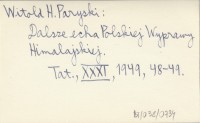 Witold H. Paryski:
Dalsze echa Polskiej Wyprawy
Himalajskiej.
Tat., XXXI, 1949, 48-49.